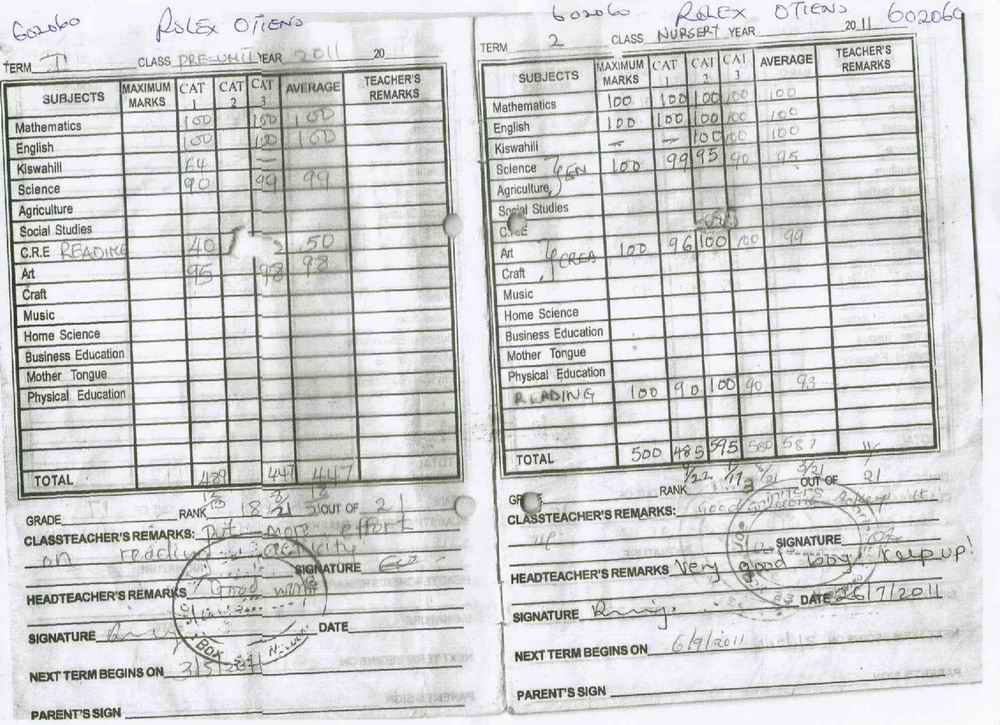 602060 ROLEX OTIENO
TERM I CLASS PRE-UNIT YEAR 2011 20
SUBJECTS MAXIMUM MARKS CAT 1 CAT 2 CAT 3 AVERAGE TEACHER'S REMARKS
Mathematics 100 100 100
English 100 100 100
Kiswahili 64 —
Science 90 99 99
Agriculture
Social Studies
C.R.E READING 40 50
Art 95 98 98
Craft
Music
Home Science
Business Education
Mother Tongue
Physical Education
TOTAL 489 447 447
GRADE RANK OUT OF 21
CLASSTEACHER'S REMARKS: Put more effort
on
SIGNATURE
HEADTEACHER'S REMARKS Good work
SIGNATURE DATE
NEXT TERM BEGINS ON 3/5/2011
PARENT'S SIGN
602060 ROLEX OTIENO 602060
TERM 2 CLASS NURSERY YEAR 2011
SUBJECTS MAXIMUM MARKS CAT 1 CAT 2 CAT 3 AVERAGE TEACHER'S REMARKS
Mathematics 100 100 100 100 100
English 100 100 100 100 100
Kiswahili — — 100 100 100
Science 100 99 95 90 95
Agriculture
Social Studies
C.R.E
Art CREA 100 96 100 100 99
Craft
Music
Home Science
Business Education
Mother Tongue
Physical Education
READING 100 90 100 90 93
TOTAL 500 485 595 587
RANK OUT OF 21
CLASSTEACHER'S REMARKS: Good
SIGNATURE
HEADTEACHER'S REMARKS Very good boy! Keep up!
SIGNATURE DATE 26/7/2011
NEXT TERM BEGINS ON 6/9/2011
PARENT'S SIGN